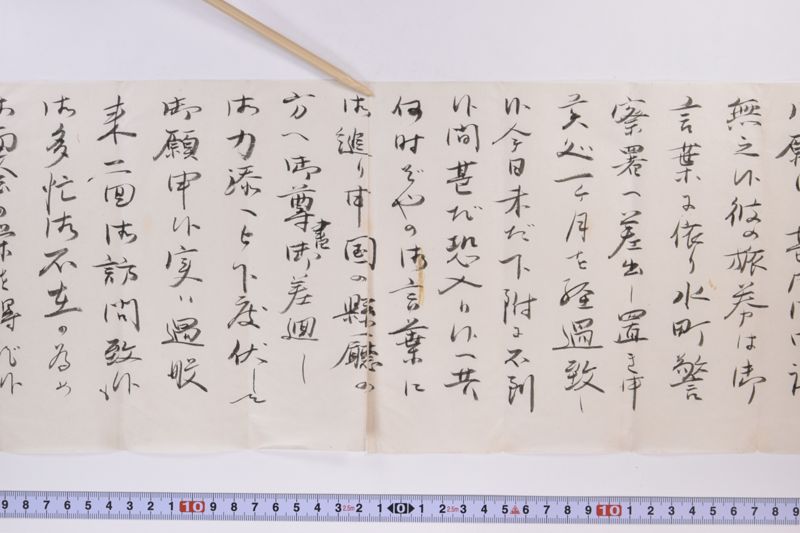 無之候彼の旅券は御
言葉に依り水町警
察署へ差出し置き申
実に一ケ月を経過致し
候今日未だ下附に不到
候間甚だ恐入り候へ共
何時ぞやの御言葉に
御縋り申国の縣廳の
方へ御尊書御差廻し
御力添へ被下度伏して
御願申候実は過般
来二回御訪問致候
御多忙御不在の為め
御面会の栄を得ず候